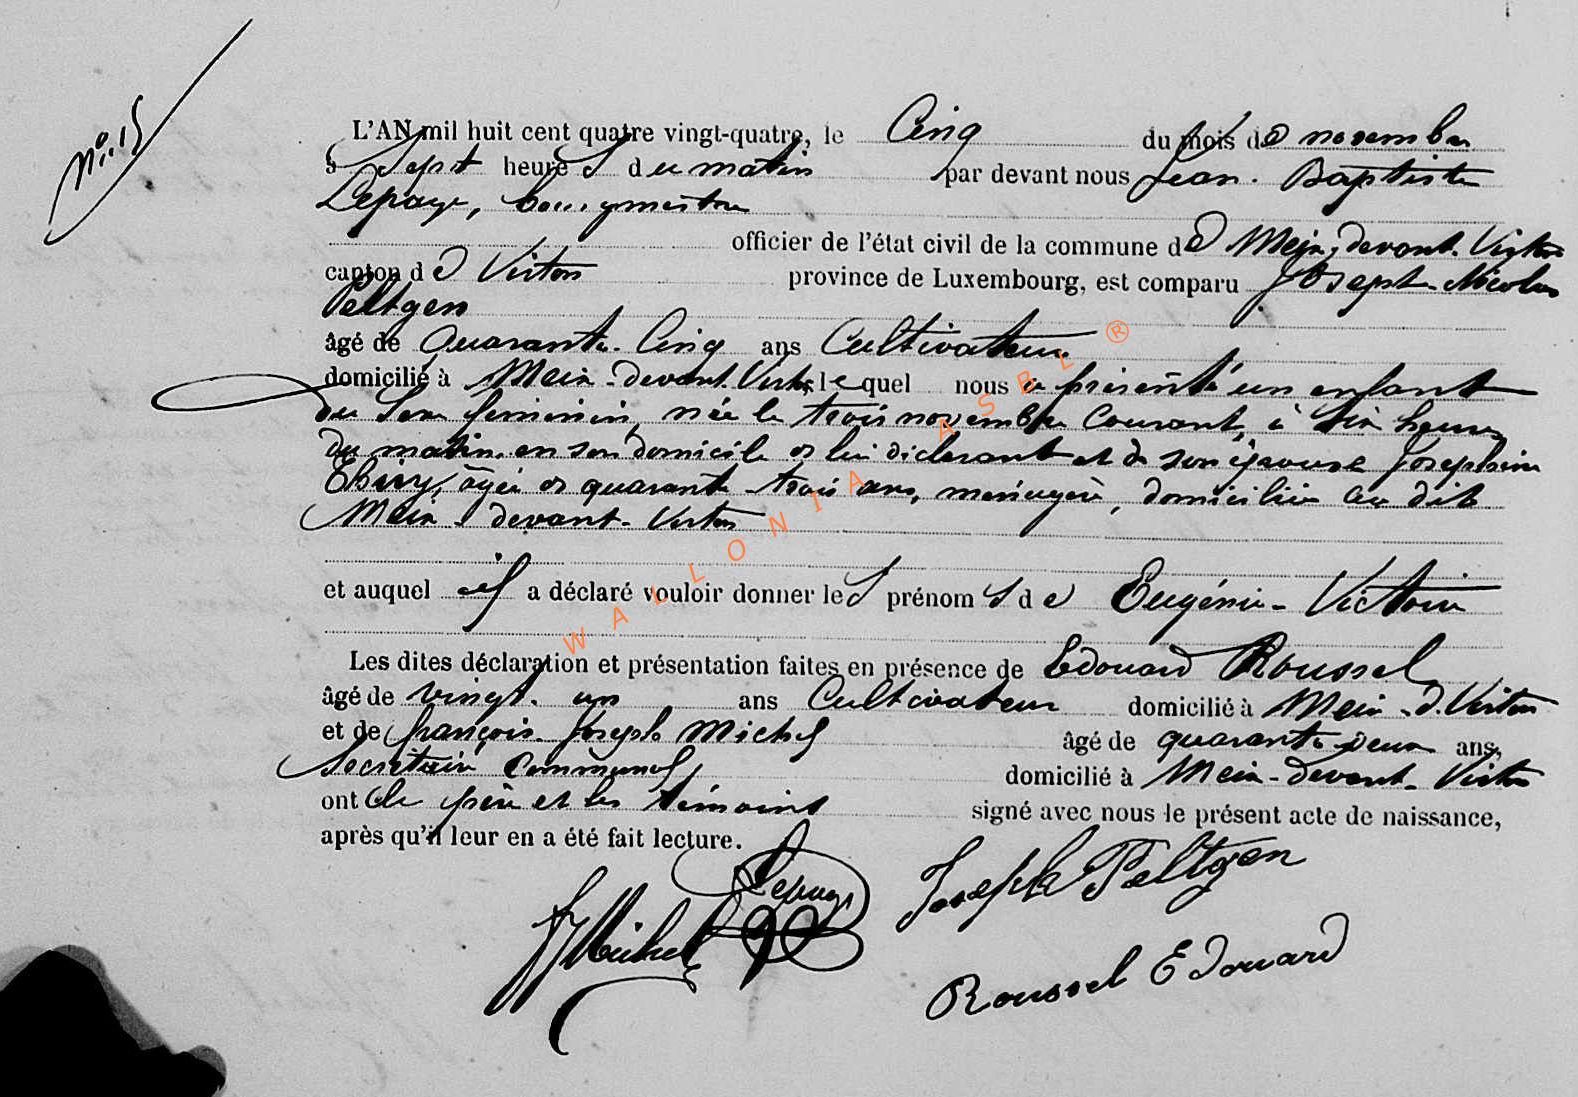 N° 15
L'AN mil huit cent quatre vingt-quatre, le Cinq du mois de novembre
à Sept heures du matin par devant nous Jean-Baptiste
Lepage, bourgmestre
officier de l'état civil de la commune de Meix-devant-Virton
canton de Virton province de Luxembourg, est comparu Joseph-Nicolas
Peltgen
âgé de Quarante-Cinq ans Cultivateur
domicilié à Meix-devant Virton, lequel nous a présenté un enfant
du Sexe féminin, née le trois novembre Courant, à Six heures
du matin, en son domicile de lui déclarant et de son épouse Joséphine
Thiry, âgée de quarante-trois ans, ménagère, domiciliée au dit
Meix-devant-Virton
et auquel il a déclaré vouloir donner les prénoms de Eugénie-Victoire
Les dites déclaration et présentation faites en présence de Edouard Roussel
âgé de vingt-un ans Cultivateur domicilié à Meix-d.Virton
et de françois-Joseph Michel âgé de quarante-deux ans,
Secrétaire Communal, domicilié à Meix-devant-Virton
ont le père et les témoins signé avec nous le présent acte de naissance,
après qu'il leur en a été fait lecture.
Lepage Joseph Peltgen
Michel
Roussel Edouard
WALLONIA ASBL ®